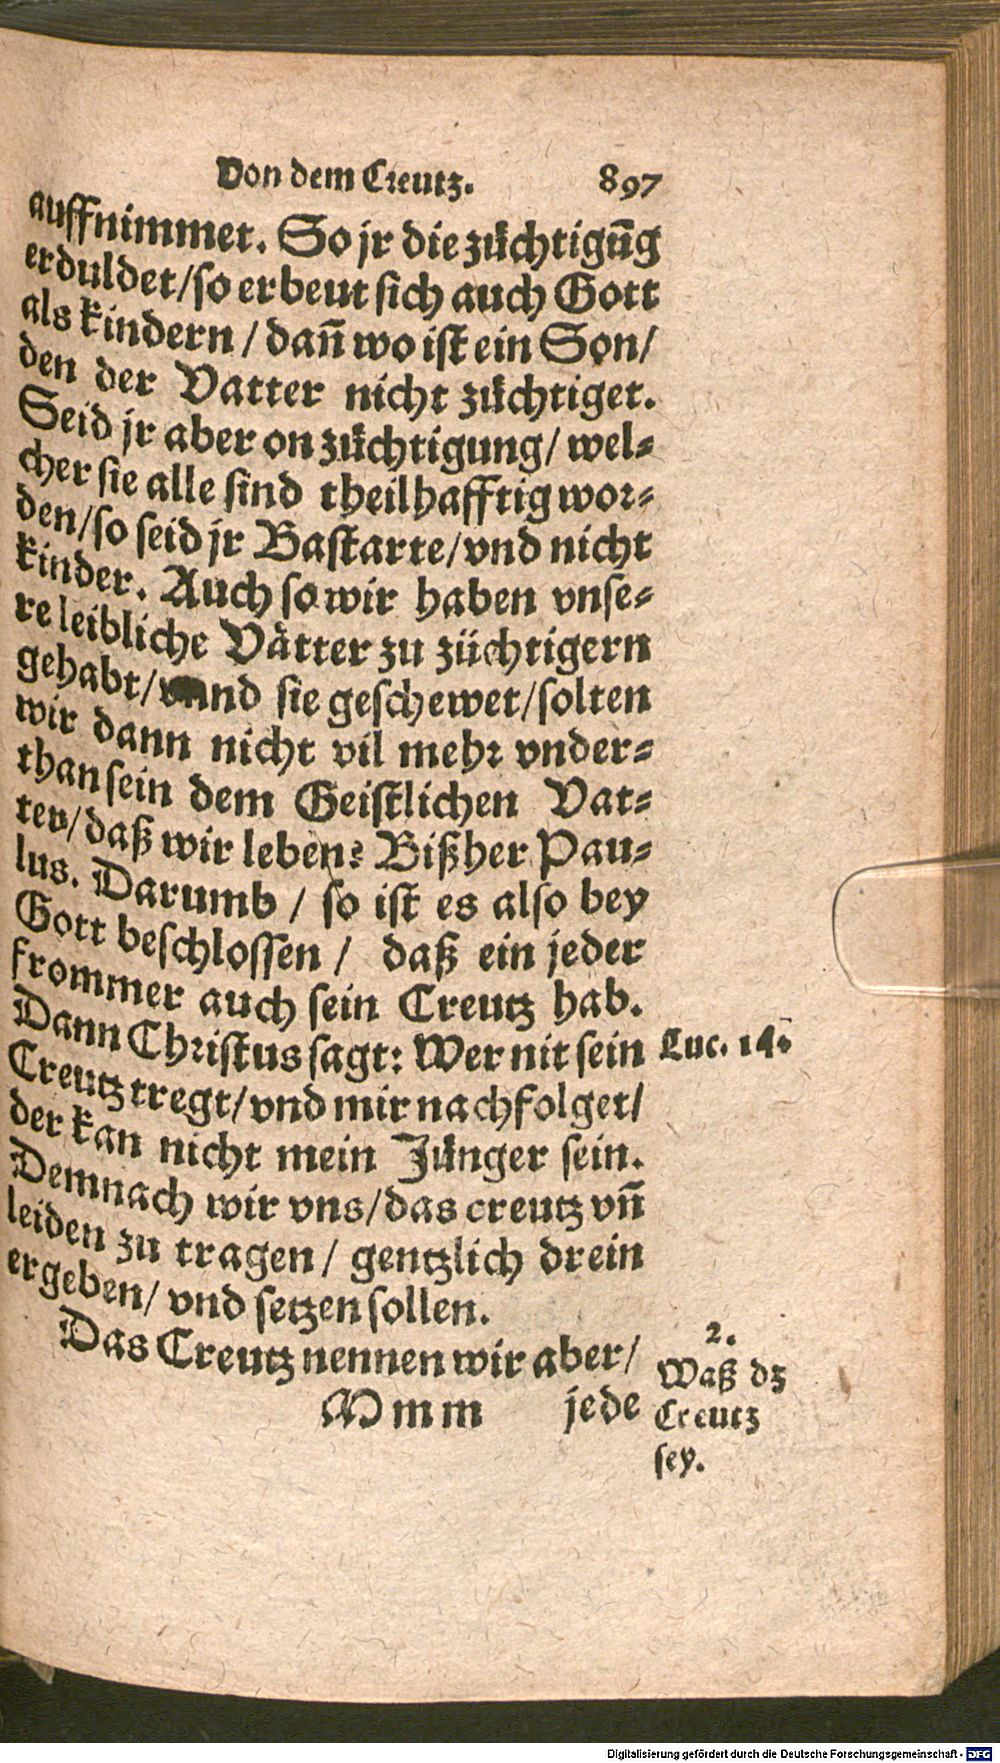 Von dem Creutz. 897
auffnimmet. So jr die züchtigūg
erduldet/so erbeut sich auch Gott
als kindern / dañ wo ist ein Son/
den der Vatter nicht züchtiget.
Seid jr aber on züchtigung/ wel=
cher sie alle sind theilhafftig wor=
den/so seid jr Bastarte/vnd nicht
kinder. Auch so wir haben vnse=
re leibliche Vätter zu züchtigern
gehabt/vnnd sie geschewet/solten
wir dann nicht vil mehr vnder=
than sein dem Geistlichen Vat=
ter/daß wir leben? Bißher Pau=
lus. Darumb / so ist es also bey
Gott beschlossen / daß ein jeder
frommer auch sein Creutz hab.
Dann Christus sagt: Wer nit sein
Luc. 14.
Creutz tregt/vnd mir nachfolget/
der kan nicht mein Jünger sein.
Demnach wir vns/das creutz vñ
leiden zu tragen / gentzlich drein
ergeben/ vnd setzen sollen.
Das Creutz nennen wir aber/
2.
Waß dz
Creutz
sey.
Mmm jede
Digitalisierung gefördert durch die Deutsche Forschungsgemeinschaft - DFG